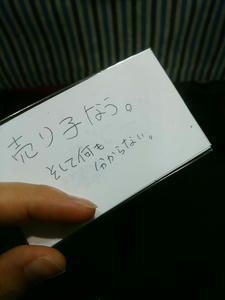 売り子なう。
そして何も
分からない。